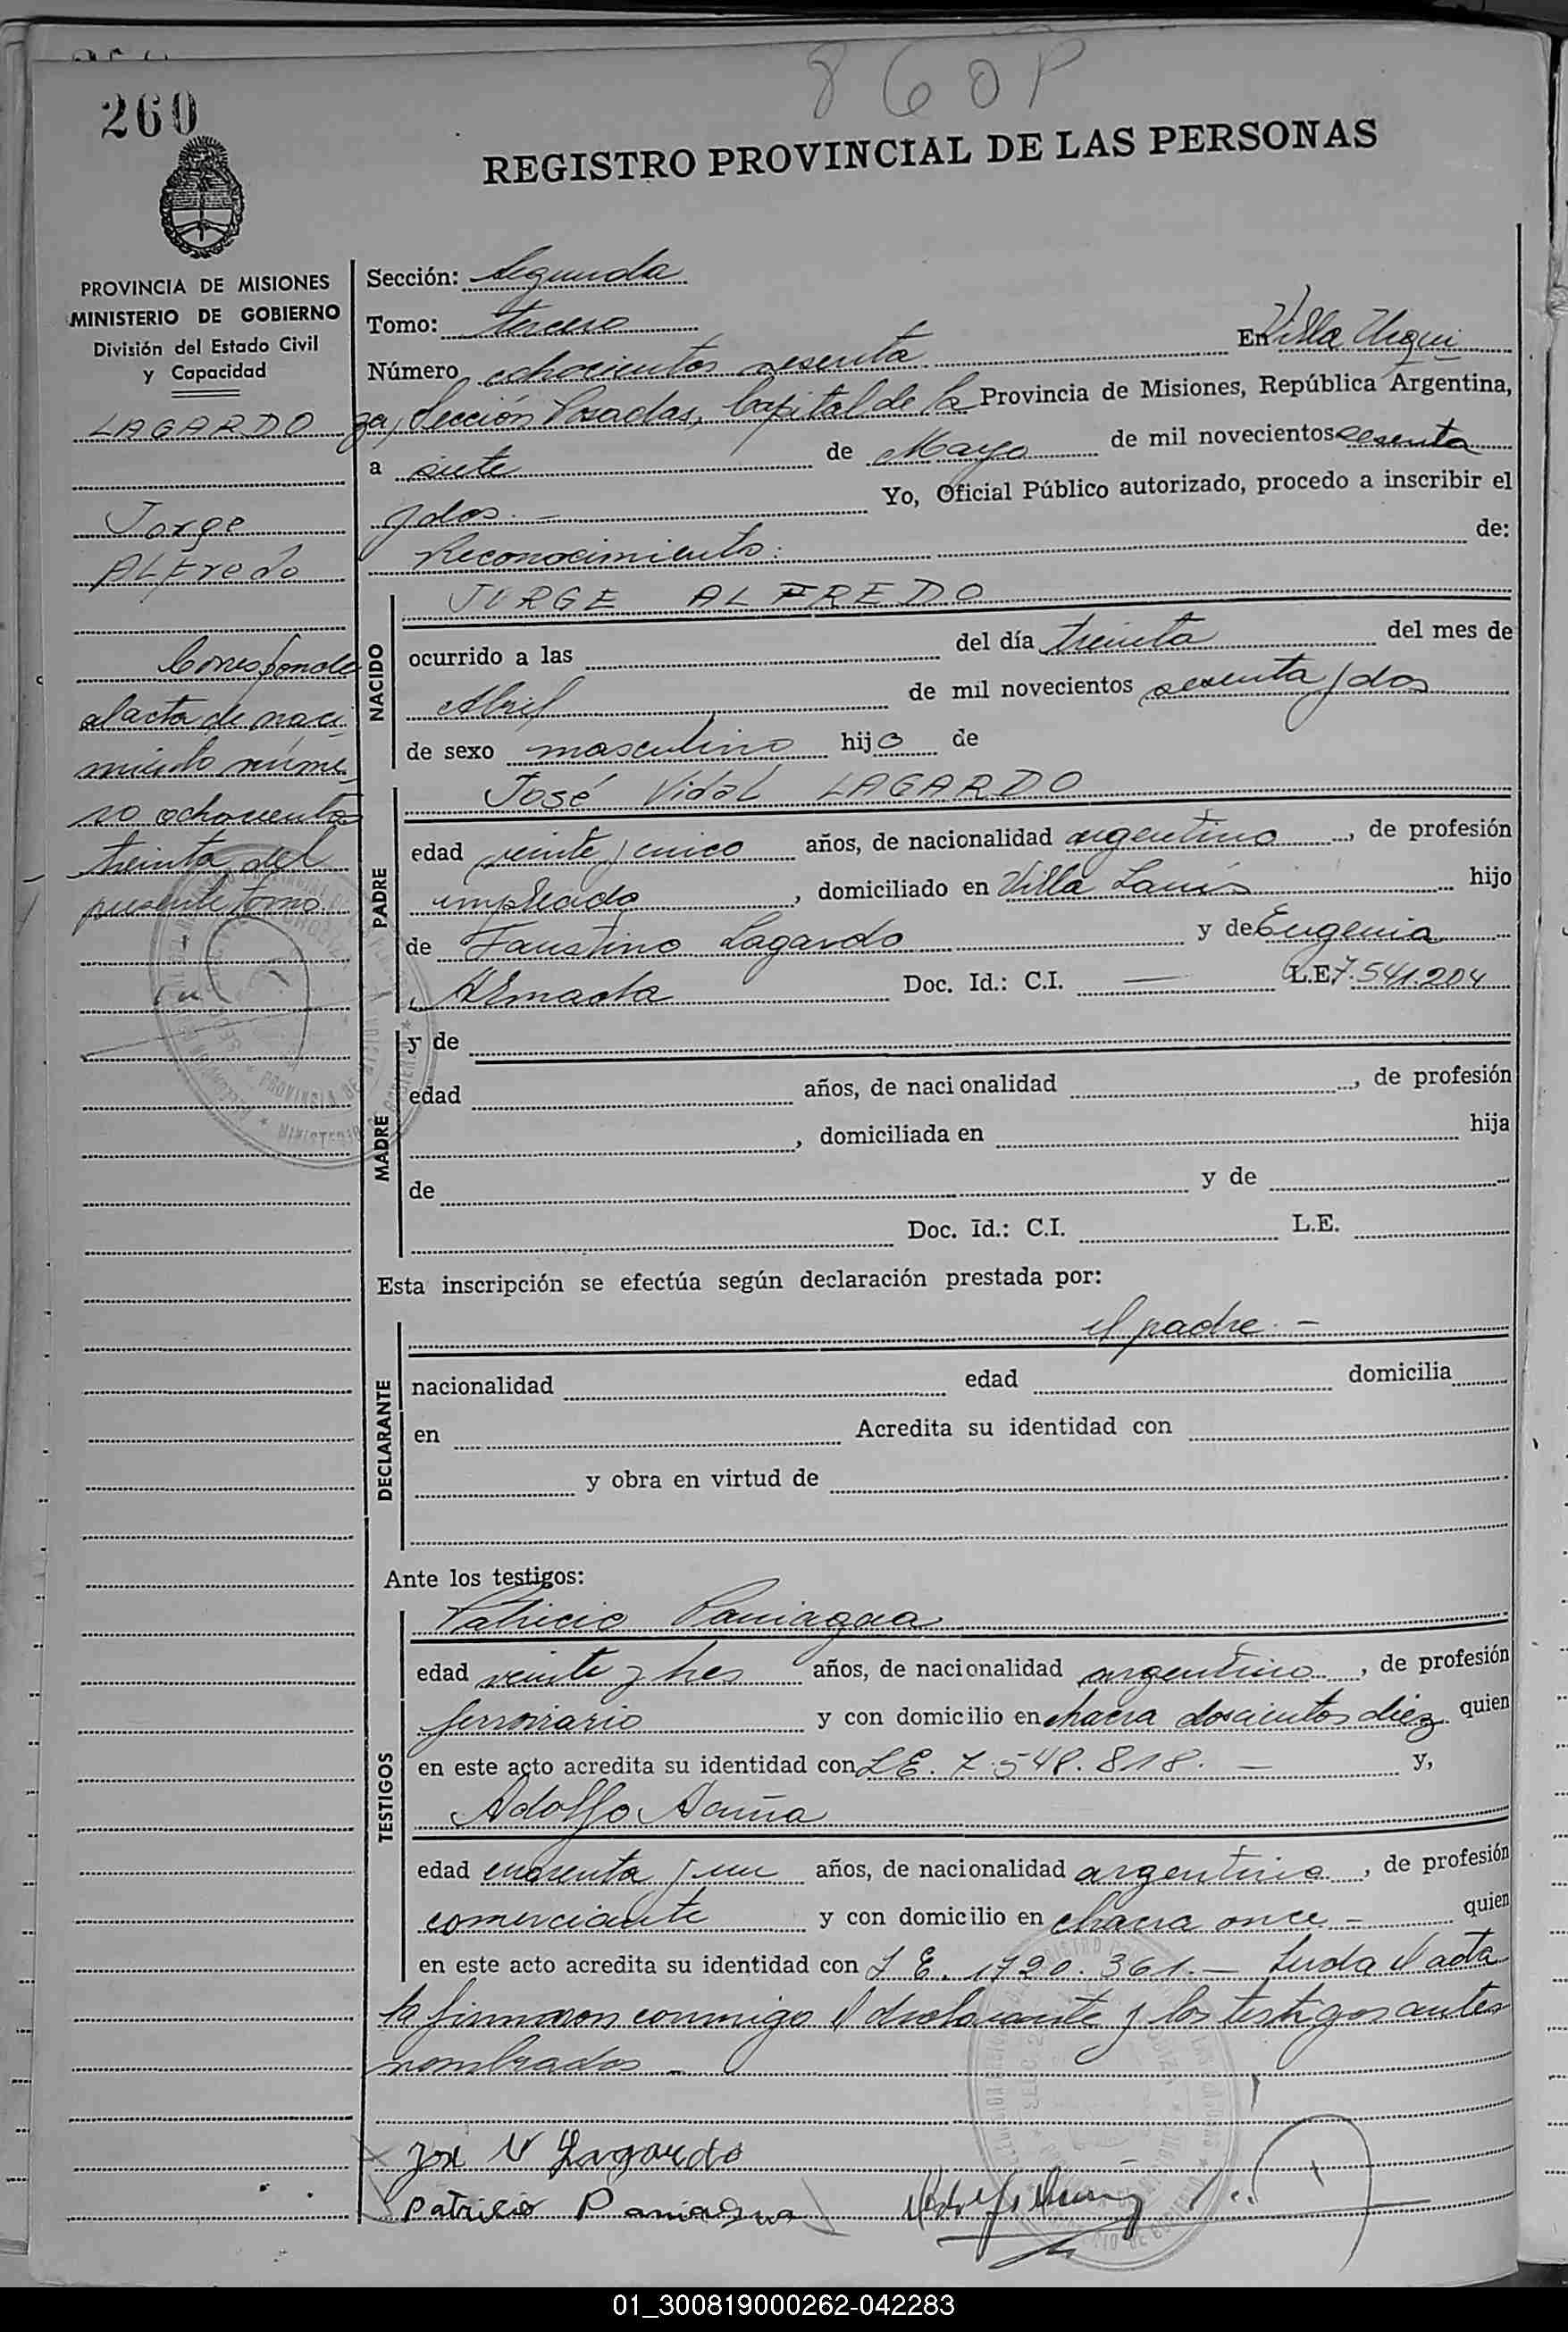 860P
260
REGISTRO PROVINCIAL DE LAS PERSONAS
PROVINCIA DE MISIONES
MINISTERIO DE GOBIERNO
División del Estado Civil
y Capacidad
LAGARDO
Jorge
ALFredo
Corresponde
al acta de naci
miento núme
ro ochocientos
treinta del
presente tomo
Sección: Segunda
Tomo: tercero
Número ochocientos sesenta En Villa Urqui
za, Sección Posadas, Capital de la Provincia de Misiones, República Argentina,
a siete de Mayo de mil novecientos sesenta
y dos.— Yo, Oficial Público autorizado, procedo a inscribir el
Reconocimiento: de:
NACIDO
JORGE ALFREDO
ocurrido a las del día treinta del mes de
Abril de mil novecientos sesenta y dos
de sexo masculino hijo de
PADRE
José Vidal LAGARDO
edad veinte y cinco años, de nacionalidad argentino, de profesión
empleado, domiciliado en Villa Lanús hijo
de Faustino Lagardo y de Eugenia
Doc. Id.: C.I. — L.E. 7.541.204
MADRE
y de
edad años, de nacionalidad , de profesión
, domiciliada en hija
de y de
Doc. Id.: C.I. L.E.
Esta inscripción se efectúa según declaración prestada por:
DECLARANTE
el padre.—
nacionalidad edad domicilia
en Acredita su identidad con
y obra en virtud de
Ante los testigos:
TESTIGOS
Patricio Paniagua
edad veinte y tres años, de nacionalidad argentino, de profesión
ferroviario y con domicilio en chacra doscientos diez quien
en este acto acredita su identidad con LE. 7.548.818.— y,
Adolfo Acuña
edad cuarenta y un años, de nacionalidad argentino, de profesión
comerciante y con domicilio en chacra once.— quien
en este acto acredita su identidad con L E. 1720.361.— Leída el acta
la firmaron conmigo el declarante y los testigos antes
nombrados.—
José V Lagardo
Patricio Paniagua
01_300819000262-042283